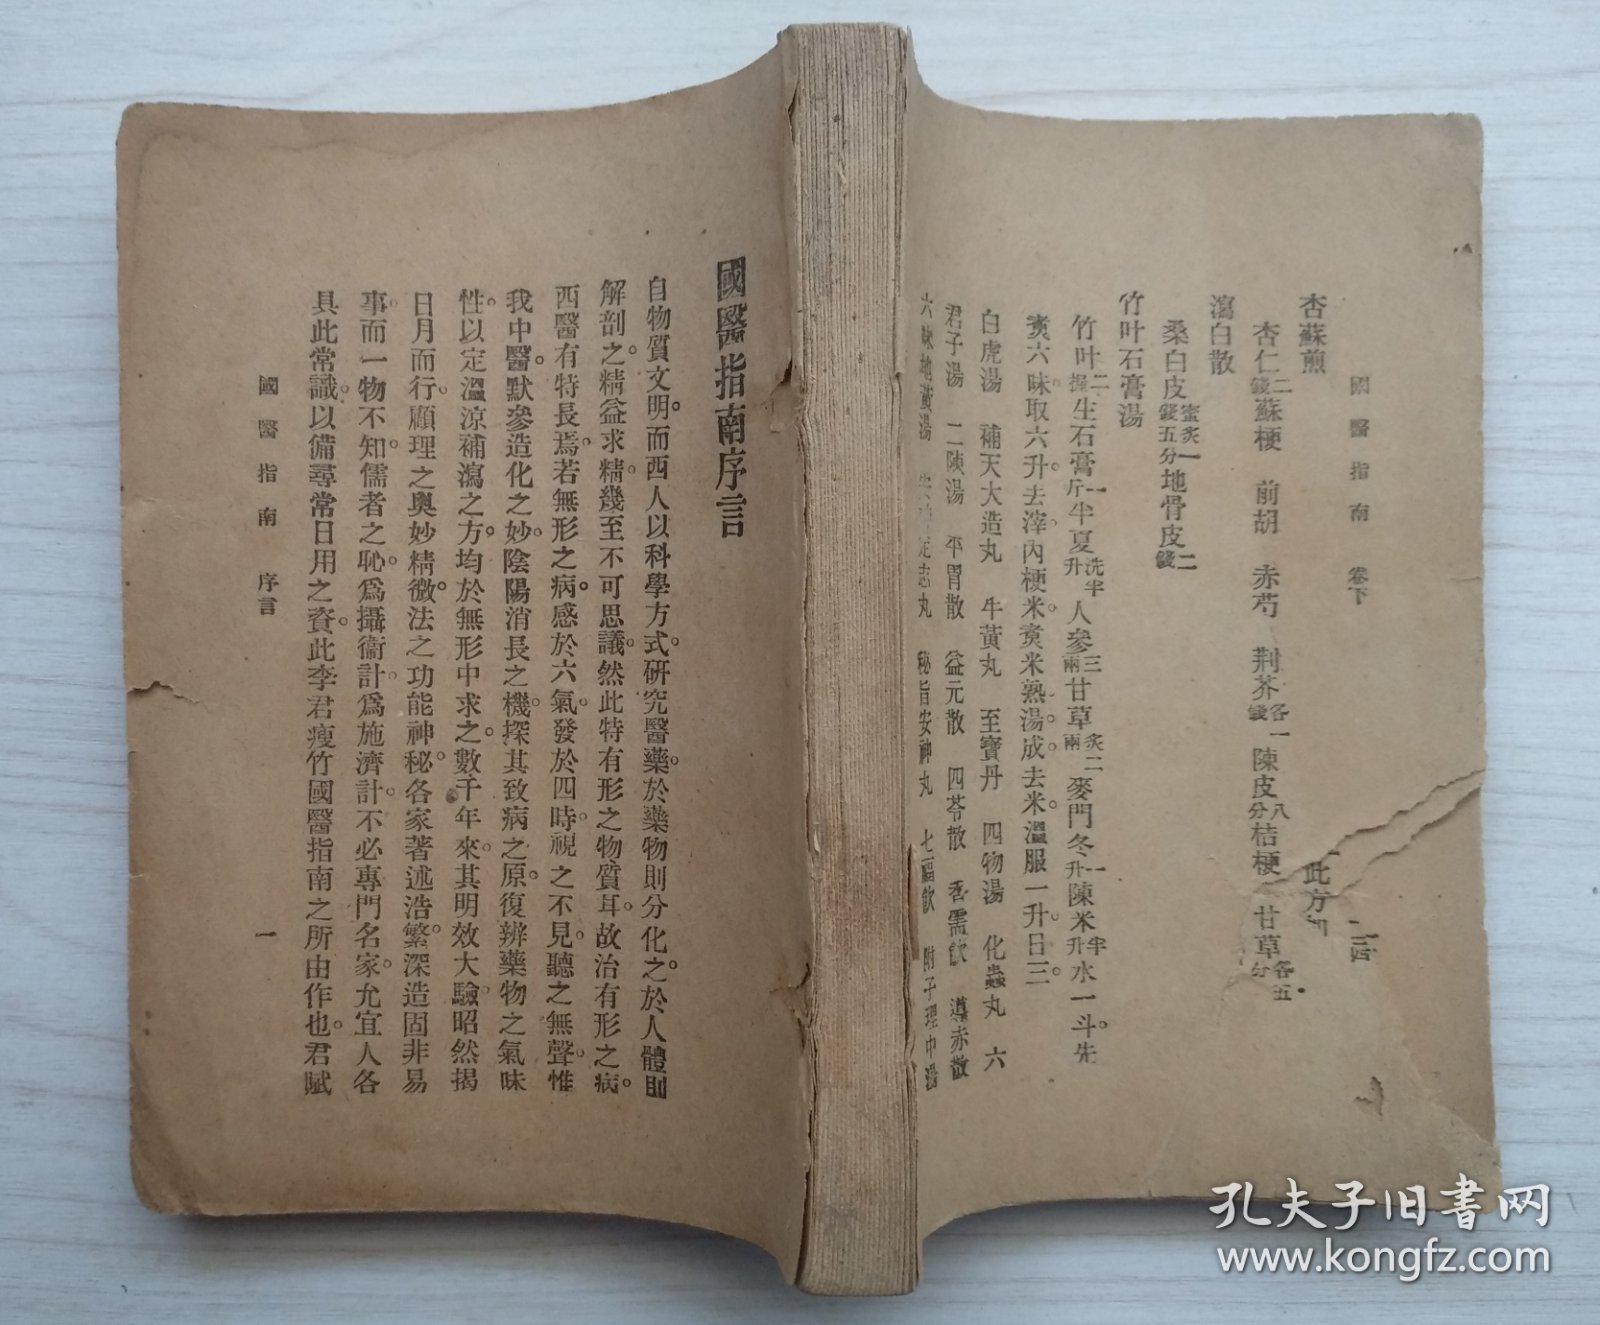 國醫指南 卷下 二百
杏蘇煎 此方
杏仁二錢蘇梗 前胡 赤芍 荆芥各一錢陳皮八分桔梗 甘草各五分
瀉白散
桑白皮蜜炙一錢五分地骨皮二錢
竹叶石膏湯
竹叶二握生石膏一斤半夏洗半升人參三兩甘草炙二兩麥門冬一升陳米半升水一斗。先
煑六味。取六升。去滓。內梗米。煑米熟。湯成。去米。溫服一升。日三。
白虎湯 補天大造丸 牛黃丸 至寶丹 四物湯 化蟲丸 六
君子湯 二陳湯 平胃散 益元散 四苓散 香薷飲 導赤散
六味地黃湯 定志丸 秘旨安神丸 七福飲 附子理中湯
國醫指南序言
自物質文明。而西人以科學方式。研究醫藥。於藥物則分化之。於人體則
解剖之。精益求精。幾至不可思議。然此特有形之物質耳。故治有形之病。
西醫有特長焉。若無形之病。感於六氣。發於四時。視之不見。聽之無聲。惟
我中醫。默參造化之妙。陰陽消長之機。探其致病之原。復辨藥物之氣味
性。以定溫涼補瀉之方。均於無形中求之。數千年來。其明效大驗。昭然揭
日月而行。顧理之奧妙精微。法之功能神秘。各家著述浩繁。深造固非易
事。而一物不知。儒者之恥。爲攝衞計。爲施濟計。不必專門名家。允宜人各
具此常識。以備尋常日用之資。此李君瘦竹國醫指南之所由作也。君賦
國醫指南 序言 一
孔夫子旧书网
www.kongfz.com